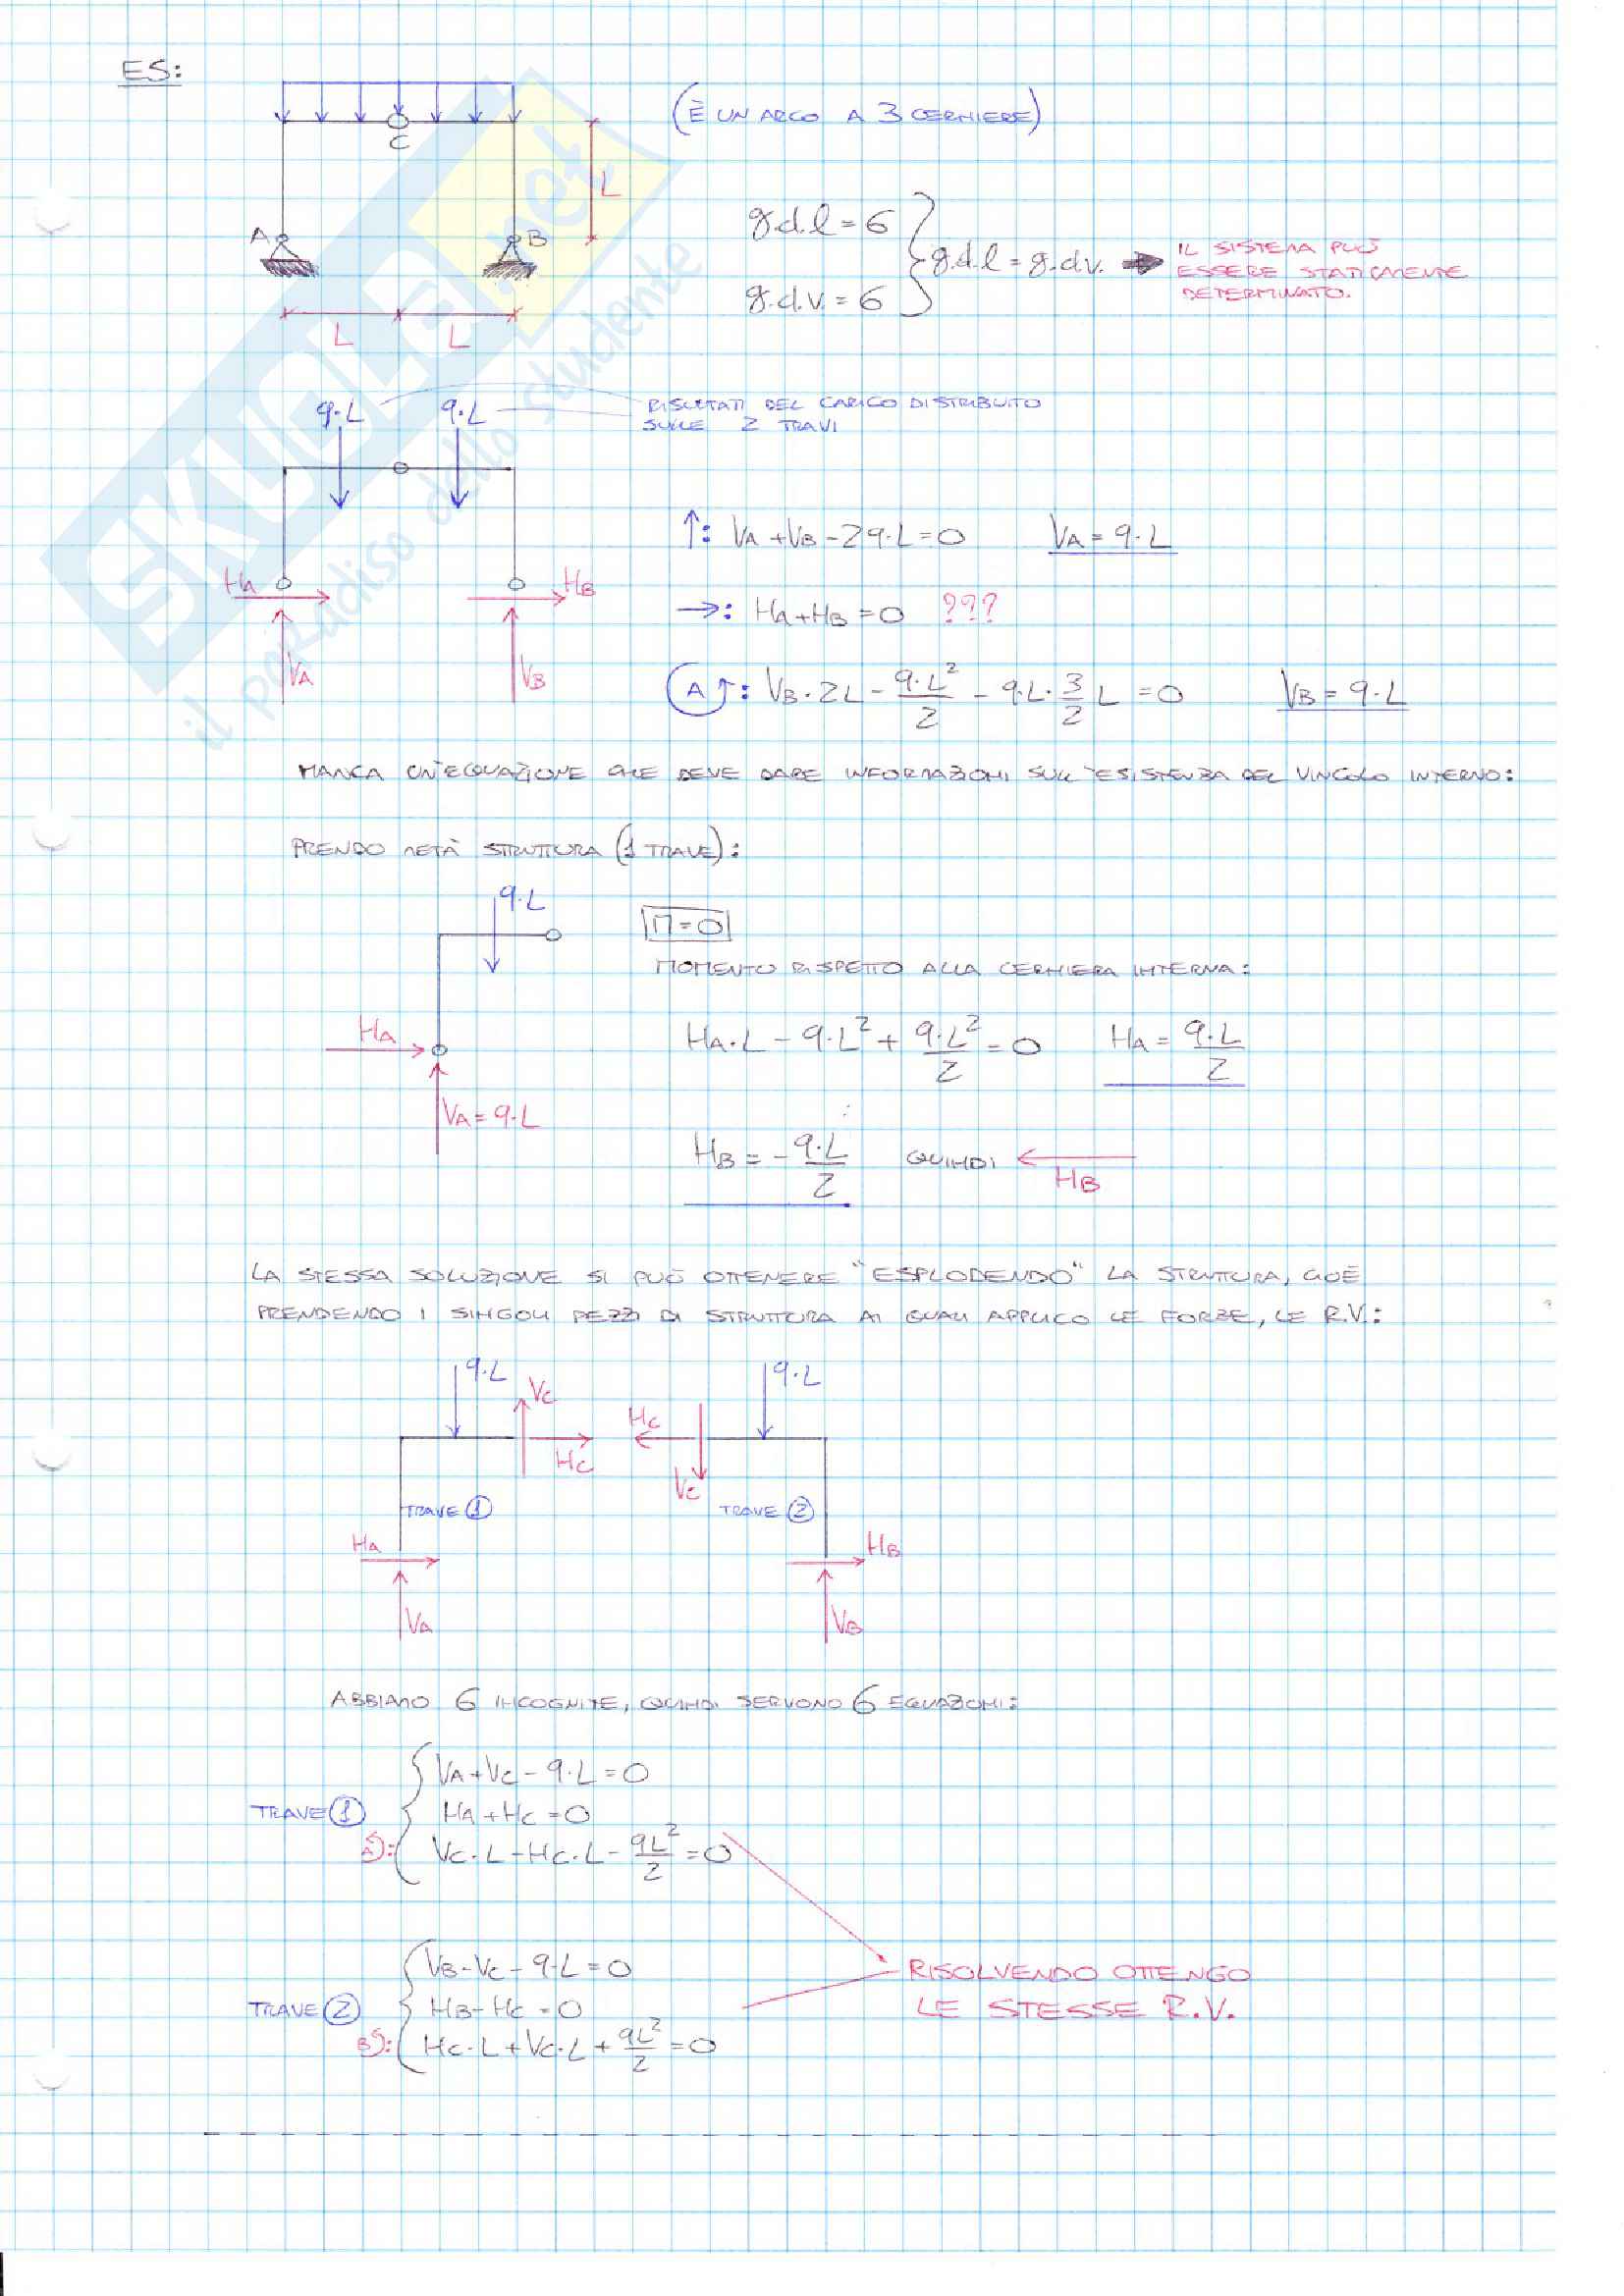 ES:
C
(È UN ARCO A 3 CERNIERE)
L
A
B
g.d.l = 6
g.d.v. = 6
g.d.l = g.d.v.
IL SISTEMA PUÒ
ESSERE STATICAMENTE
DETERMINATO.
L L
q·L q·L
RISULTATI DEL CARICO DISTRIBUITO
SULLE 2 TRAVI
↑: VA + VB - 2q·L = 0 VA = q·L
HA HB
→: HA + HB = 0 ???
VA VB
A: VB·2L - q·L²/2 - q·L·3/2 L = 0 VB = q·L
MANCA UN'EQUAZIONE CHE DEVE DARE INFORMAZIONI SULL'ESISTENZA DEL VINCOLO INTERNO:
PRENDO METÀ STRUTTURA (1 TRAVE):
q·L
M=0
MOMENTO RISPETTO ALLA CERNIERA INTERNA:
HA
HA·L - q·L² + q·L²/2 = 0 HA = q·L/2
VA = q·L
HB = - q·L/2 QUINDI ← HB
LA STESSA SOLUZIONE SI PUÒ OTTENERE "ESPLODENDO" LA STRUTTURA, CIOÈ
PRENDENDO I SINGOLI PEZZI DI STRUTTURA AI QUALI APPLICO LE FORZE, LE R.V.:
q·L VC q·L
HC HC
VC
TRAVE 1 TRAVE 2
HA HB
VA VB
ABBIAMO 6 INCOGNITE, QUINDI SERVONO 6 EQUAZIONI:
VA + VC - q·L = 0
TRAVE 1 HA + HC = 0
A): VC·L - HC·L - qL²/2 = 0
VB - VC - q·L = 0
TRAVE 2 HB - HC = 0
B): HC·L + VC·L + qL²/2 = 0
RISOLVENDO OTTENGO
LE STESSE R.V.
SKUOLA.net
il paradiso dello studente